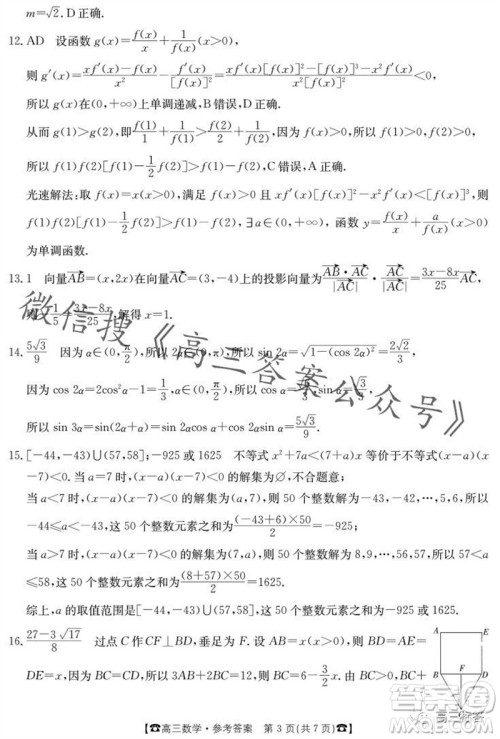 m=√2. D正确.
12. AD 设函数 g(x)=f(x)/x+1/f(x)(x>0),
则 g′(x)=(xf′(x)-f(x))/x²-f′(x)/[f(x)]²=(xf′(x)[f(x)]²-[f(x)]³-x²f′(x))/(x²[f(x)]²)<0,
所以 g(x)在(0,+∞)上单调递减,B错误,D正确.
从而 g(1)>g(2),即f(1)/1+1/f(1)>f(2)/2+1/f(2),因为 f(x)>0,所以 f(1)>0,f(2)>0,
所以 f(1)f(2)[f(1)-1/2f(2)]>f(1)-f(2),C错误,A正确.
光速解法:取 f(x)=x,满足 f(x)>0 且 xf′(x)[f(x)]²-x²f′(x)<[f(x)]³,则
f(1)f(2)[f(1)-1/2f(2)]>f(1)-f(2),∃a∈(0,+∞),函数 y=f(x)/x+a/f(x)(x>0)
为单调函数.
13. 1 向量AB=(x,2x)在向量AC=(3,-4)上的投影向量为(AB·AC)/|AC|·AC/|AC|=(3x-8x)/25 AC,
1/5=(3x-8x)/25,解得 x=1.
14. 5√3/9 因为 α∈(0,π/2),所以 2α∈(0,π),所以 sin 2α=√(1-(cos 2α)²)=2√2/3,
因为 cos 2α=2cos²α-1=1/3,α∈(0,π/2),所以 cos α=√6/3,sin α=√3/3,
所以 sin 3α=sin(2α+α)=sin 2αcos α+cos 2αsin α=5√3/9.
15. [-44,-43)∪(57,58];-925或1625 不等式 x²+7a<(7+a)x 等价于不等式(x-a)(x
-7)<0. 当 a=7 时,(x-a)(x-7)<0 的解集为∅,不合题意;
当 a<7 时,(x-a)(x-7)<0 的解集为(a,7),则 50 个整数解为-43,-42,…,5,6,所以
-44≤a<-43,这 50 个整数元素之和为((-43+6)×50)/2=-925;
当 a>7 时,(x-a)(x-7)<0 的解集为(7,a),则 50 个整数解为 8,9,…,56,57,所以 57<a
≤58,这 50 个整数元素之和为((8+57)×50)/2=1625.
综上,a 的取值范围是[-44,-43)∪(57,58],这 50 个整数元素之和为-925 或 1625.
16. (27-3√17)/8 过点 C 作 CF⊥BD,垂足为 F. 设 AB=BD=AE=
DE=x,因为 BC=CD,所以 3AB+2BC=12,则 BC=6-3/2x,由
A
E
B
F
D
【高三数学·参考答案 第 3 页(共 7 页)】
微信搜《高三答案公众号》